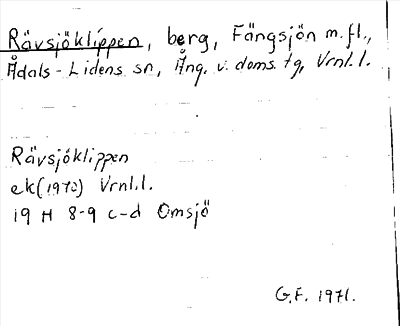 Rävsjöklippen, berg, Fängsjön m.fl.,
Ådals-Lidens sn, Ång. v. doms. tg, Vrnl.l.
Rävsjöklippen
ek(1970) Vrnl.l.
19 H 8-9 c-d Omsjö
G.F. 1971.